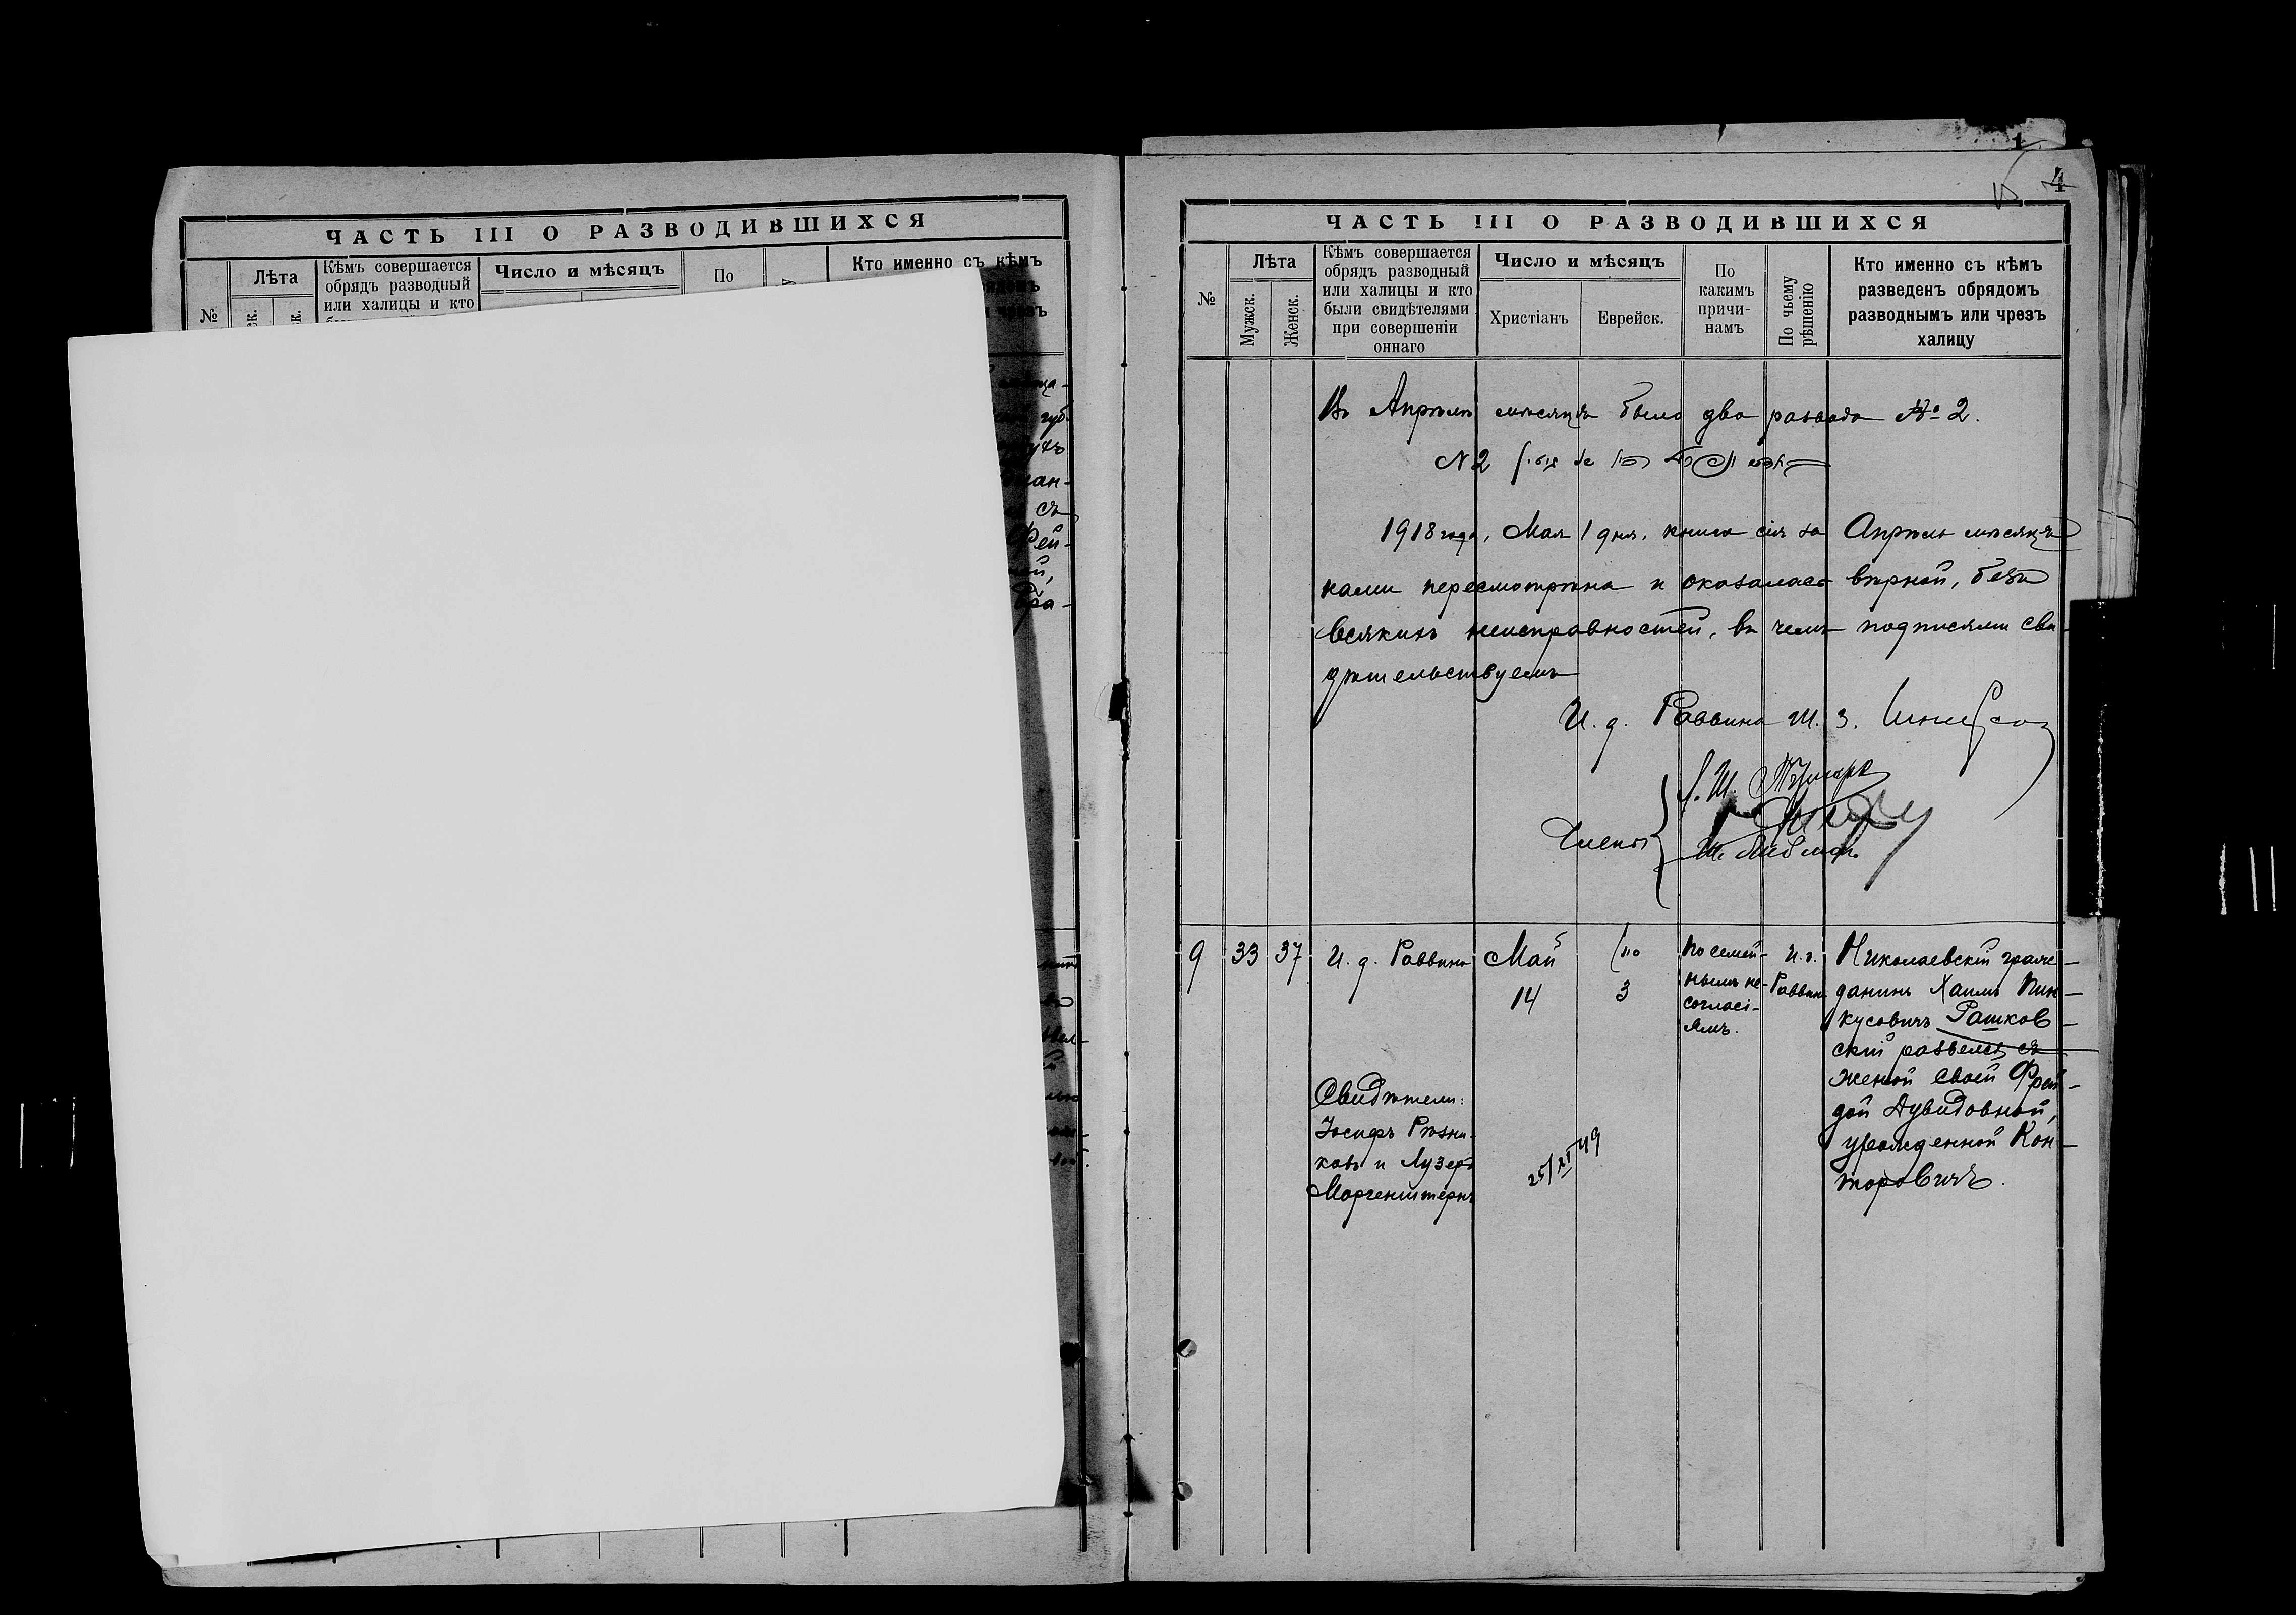 ЧАСТЬ III О РАЗВОДИВШИХСЯ
№
Лѣта
Кѣмъ совершается
обрядъ разводный
или халицы и кто
Число и мѣсяцъ
По
Кто именно съ кѣмъ
губ.
съ
4
ЧАСТЬ III О РАЗВОДИВШИХСЯ
№
Лѣта
Мужск.
Женск.
Кѣмъ совершается
обрядъ разводный
или халицы и кто
были свидѣтелями
при совершеніи
оннаго
Число и мѣсяцъ
Христіанъ
Еврейск.
По
какимъ
причи-
намъ
По чьему
рѣшенію
Кто именно съ кѣмъ
разведенъ обрядомъ
разводнымъ или чрезъ
халицу
Въ Апрѣлѣ мѣсяцѣ было два развода № 2.
N 2
1918 года, Мая 1 дня, книга сія за Апрѣль мѣсяцъ
нами пересмотрѣна и оказалась вѣрной, безъ
всякихъ неисправностей, въ чемъ подписями сви-
дѣтельствуемъ
И. д. Раввина
Члены
9
33
37
И. д. Раввина
Май
14
3
По семей-
нымъ не-
согласі-
ямъ.
И. д.
Раввина
Николаевскій граж-
данинъ Хаимъ Пин-
кусовичъ Рашков-
скій развелся съ
женой своей Фрей-
дой Дувидовной,
урожденной Кон-
торовичъ.
Свидѣтели:
Іосифъ Рѣзни-
ковъ и Лузеръ
Моргенштернъ
25/XI 49